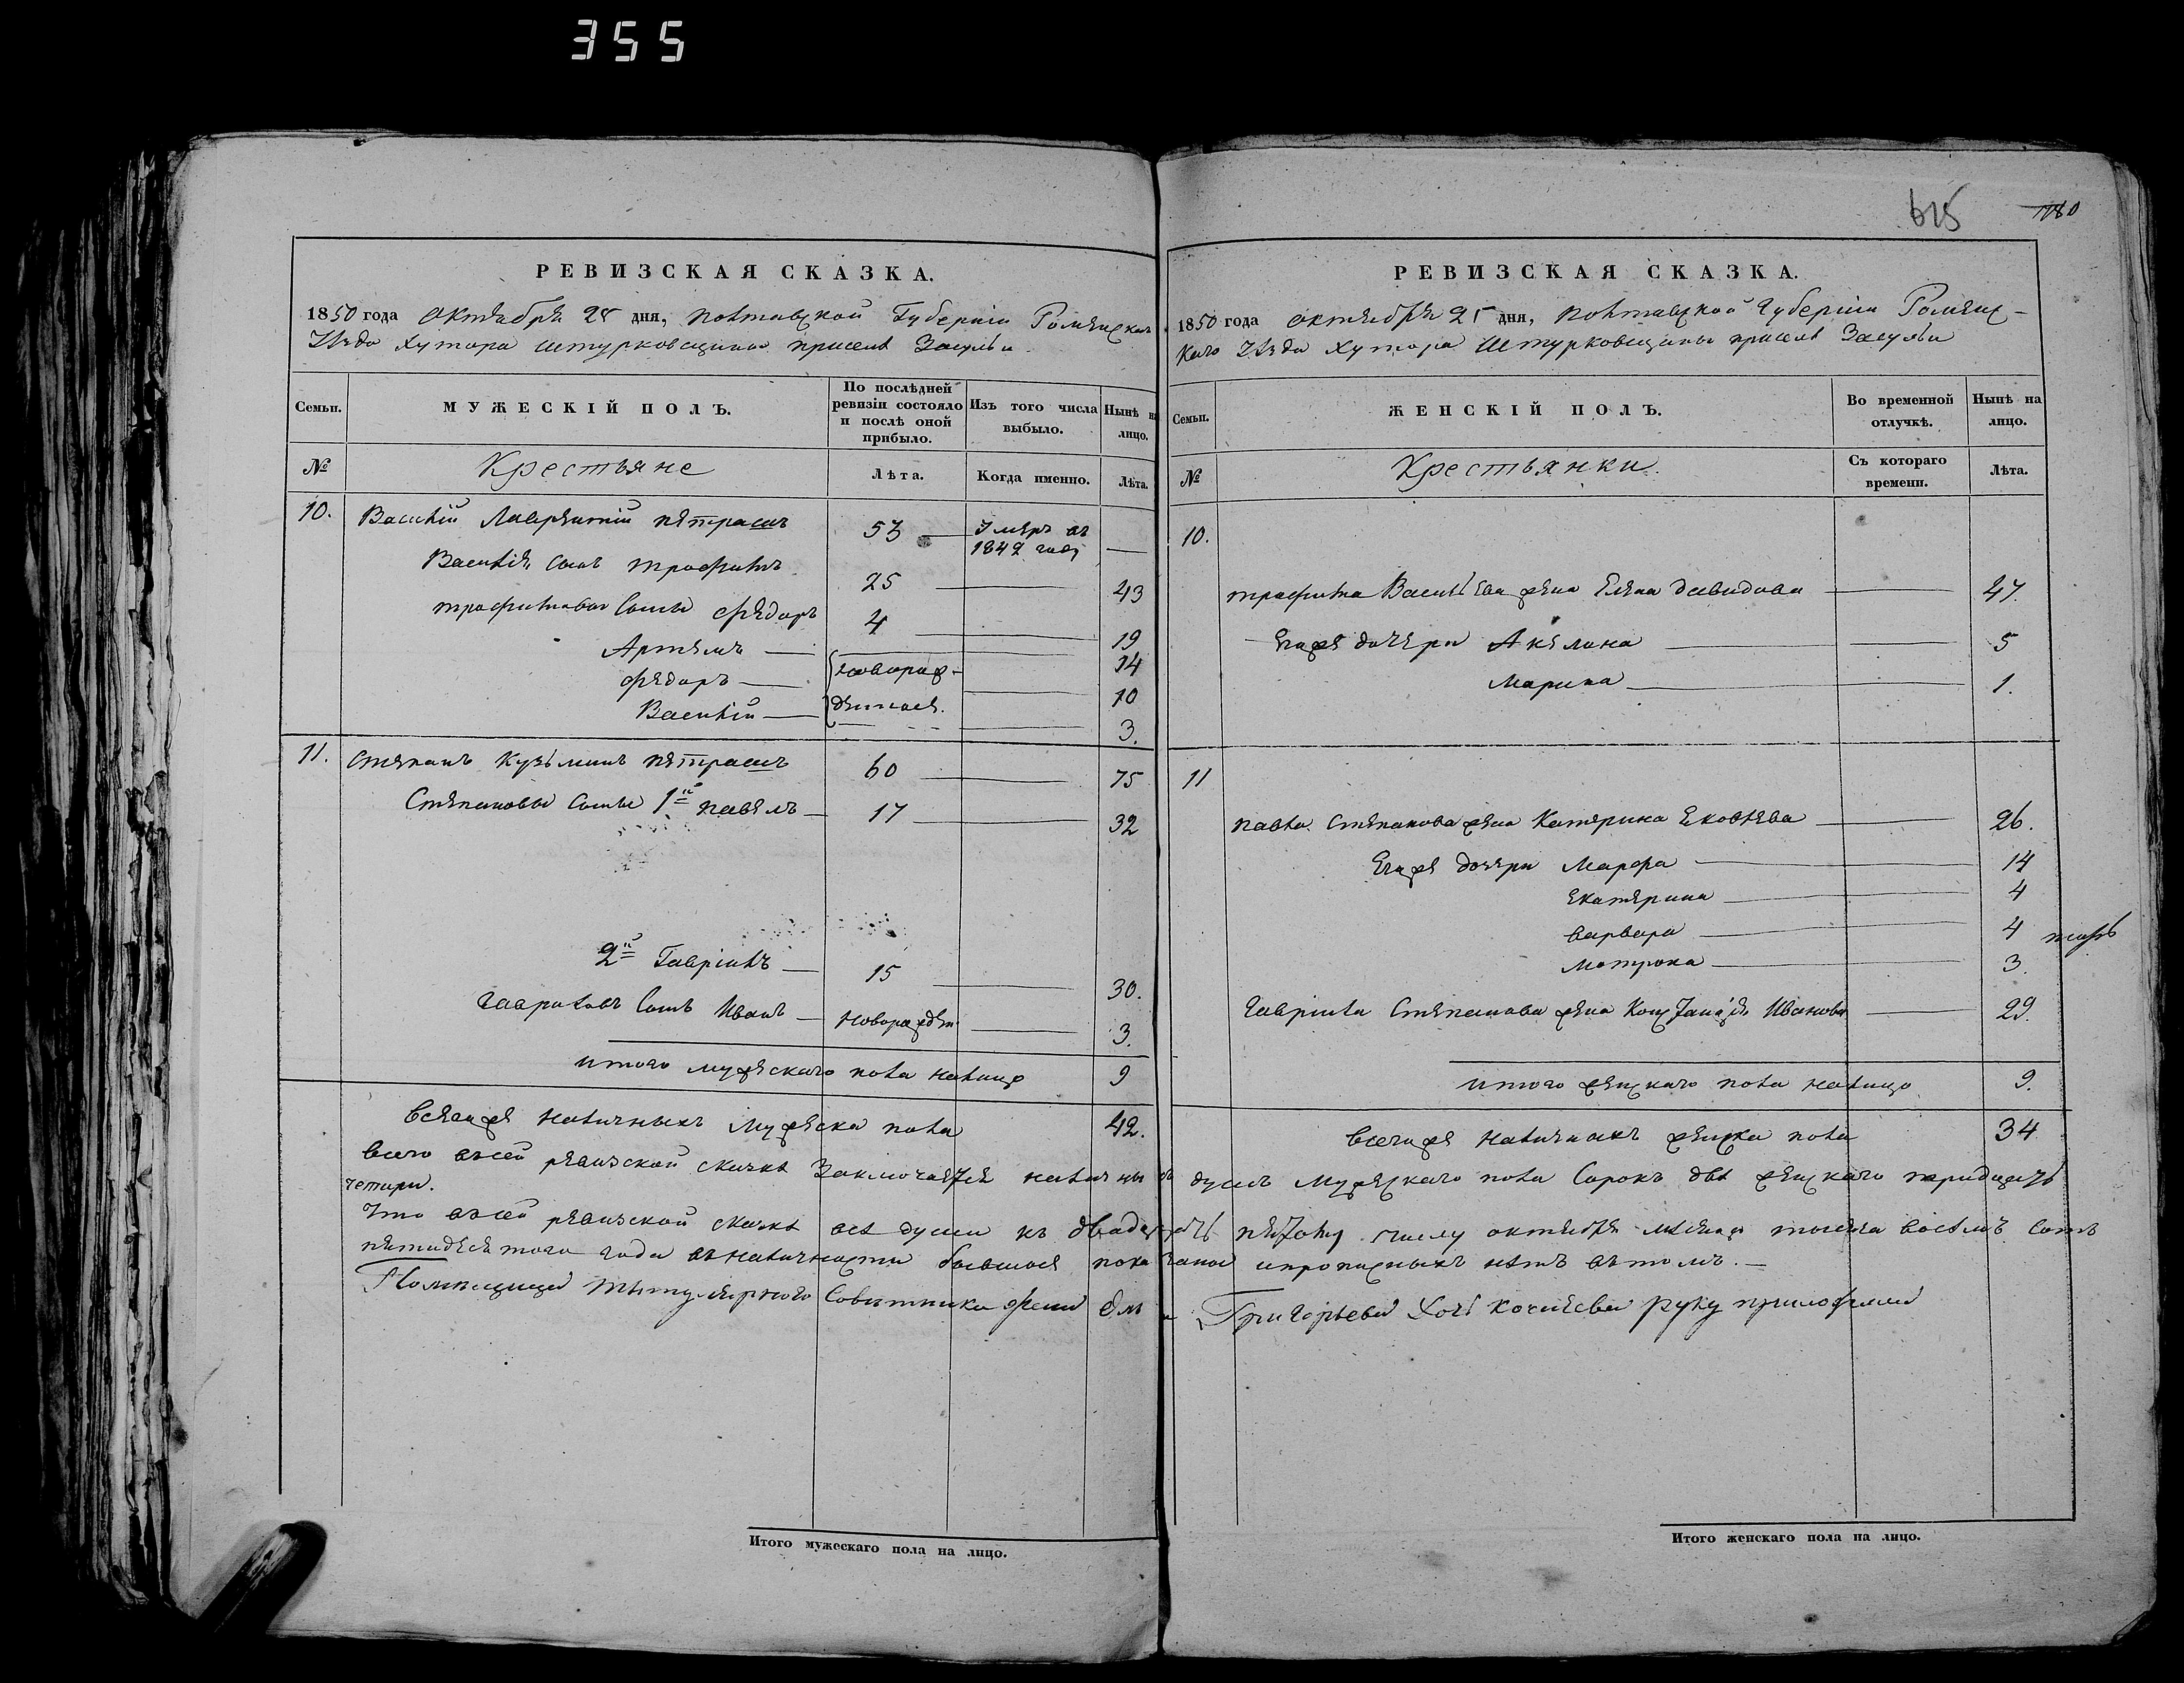 355
615 1180
РЕВИЗСКАЯ СКАЗКА.
1850 года Октября 25 дня, Полтавской Губерніи Роменскаго
Уезда Хутора Штурковщины приселе Засульи
Семьи.
МУЖЕСКІЙ ПОЛЪ.
По послѣдней ревизіи состояло и послѣ оной прибыло.
Изъ того числа выбыло.
Нынѣ на лицо.
№ Крестьяне Лѣта. Когда именно. Лѣта.
10. Василій Лаврентіи Петрашъ 53 Умеръ въ 1842 году
Василія сынъ Трофимъ 25 43
Трофимовы Сыны Федоръ 4 19
Артемъ новорож- 14
Федоръ 10
Василій денныя. 3.
11. Степанъ Кузьминъ Петрашъ 60 75
Степановы Сыны 1й Павелъ 17 32
2й Гавріилъ 15 30.
Гавриловъ Сынъ Иванъ Новорожден 3.
Итого мужескаго пола налицо 9
Всегоже наличныхъ мужеска пола 42.
РЕВИЗСКАЯ СКАЗКА.
1850 года Октября 25 дня, Полтавской Губерніи Роменс-
каго Уезда Хутора Штурковщины приселе Засульи
Семьи.
ЖЕНСКІЙ ПОЛЪ.
Во временной отлучкѣ.
Нынѣ на лицо.
№ Крестьянки. Съ котораго времени. Лѣта.
10.
Трофима Васильева жена Елена Давидова 47.
Егоже дочери Акелина 5
Марина 1.
11
Павла Степанова жена Катерина Яковлева 26.
Егоже дочери Марфа 14
Екатерина 4
Варвара 4
Мотрона 3.
Гавріила Степанова жена Констанція Иванова 29.
Итого женскаго пола налицо 9.
Всегоже наличныхъ женска пола 34
Всего въсей ревизской сказке Заключается наличныхъ душъ Мужескаго пола Сорокъ две женскаго тридцать
четыри.
Что въсей ревизской сказке все души къ двадцать пятому числу октября месяца тысяча восемъ сотъ
пятидесятого года въналичности бывшыя показаны ипрописныхъ нетъ вътомъ.
Помещица Титулярного Советника жена Григорьева дочь руку приложила
Итого мужескаго пола на лицо.
Итого женскаго пола на лицо.